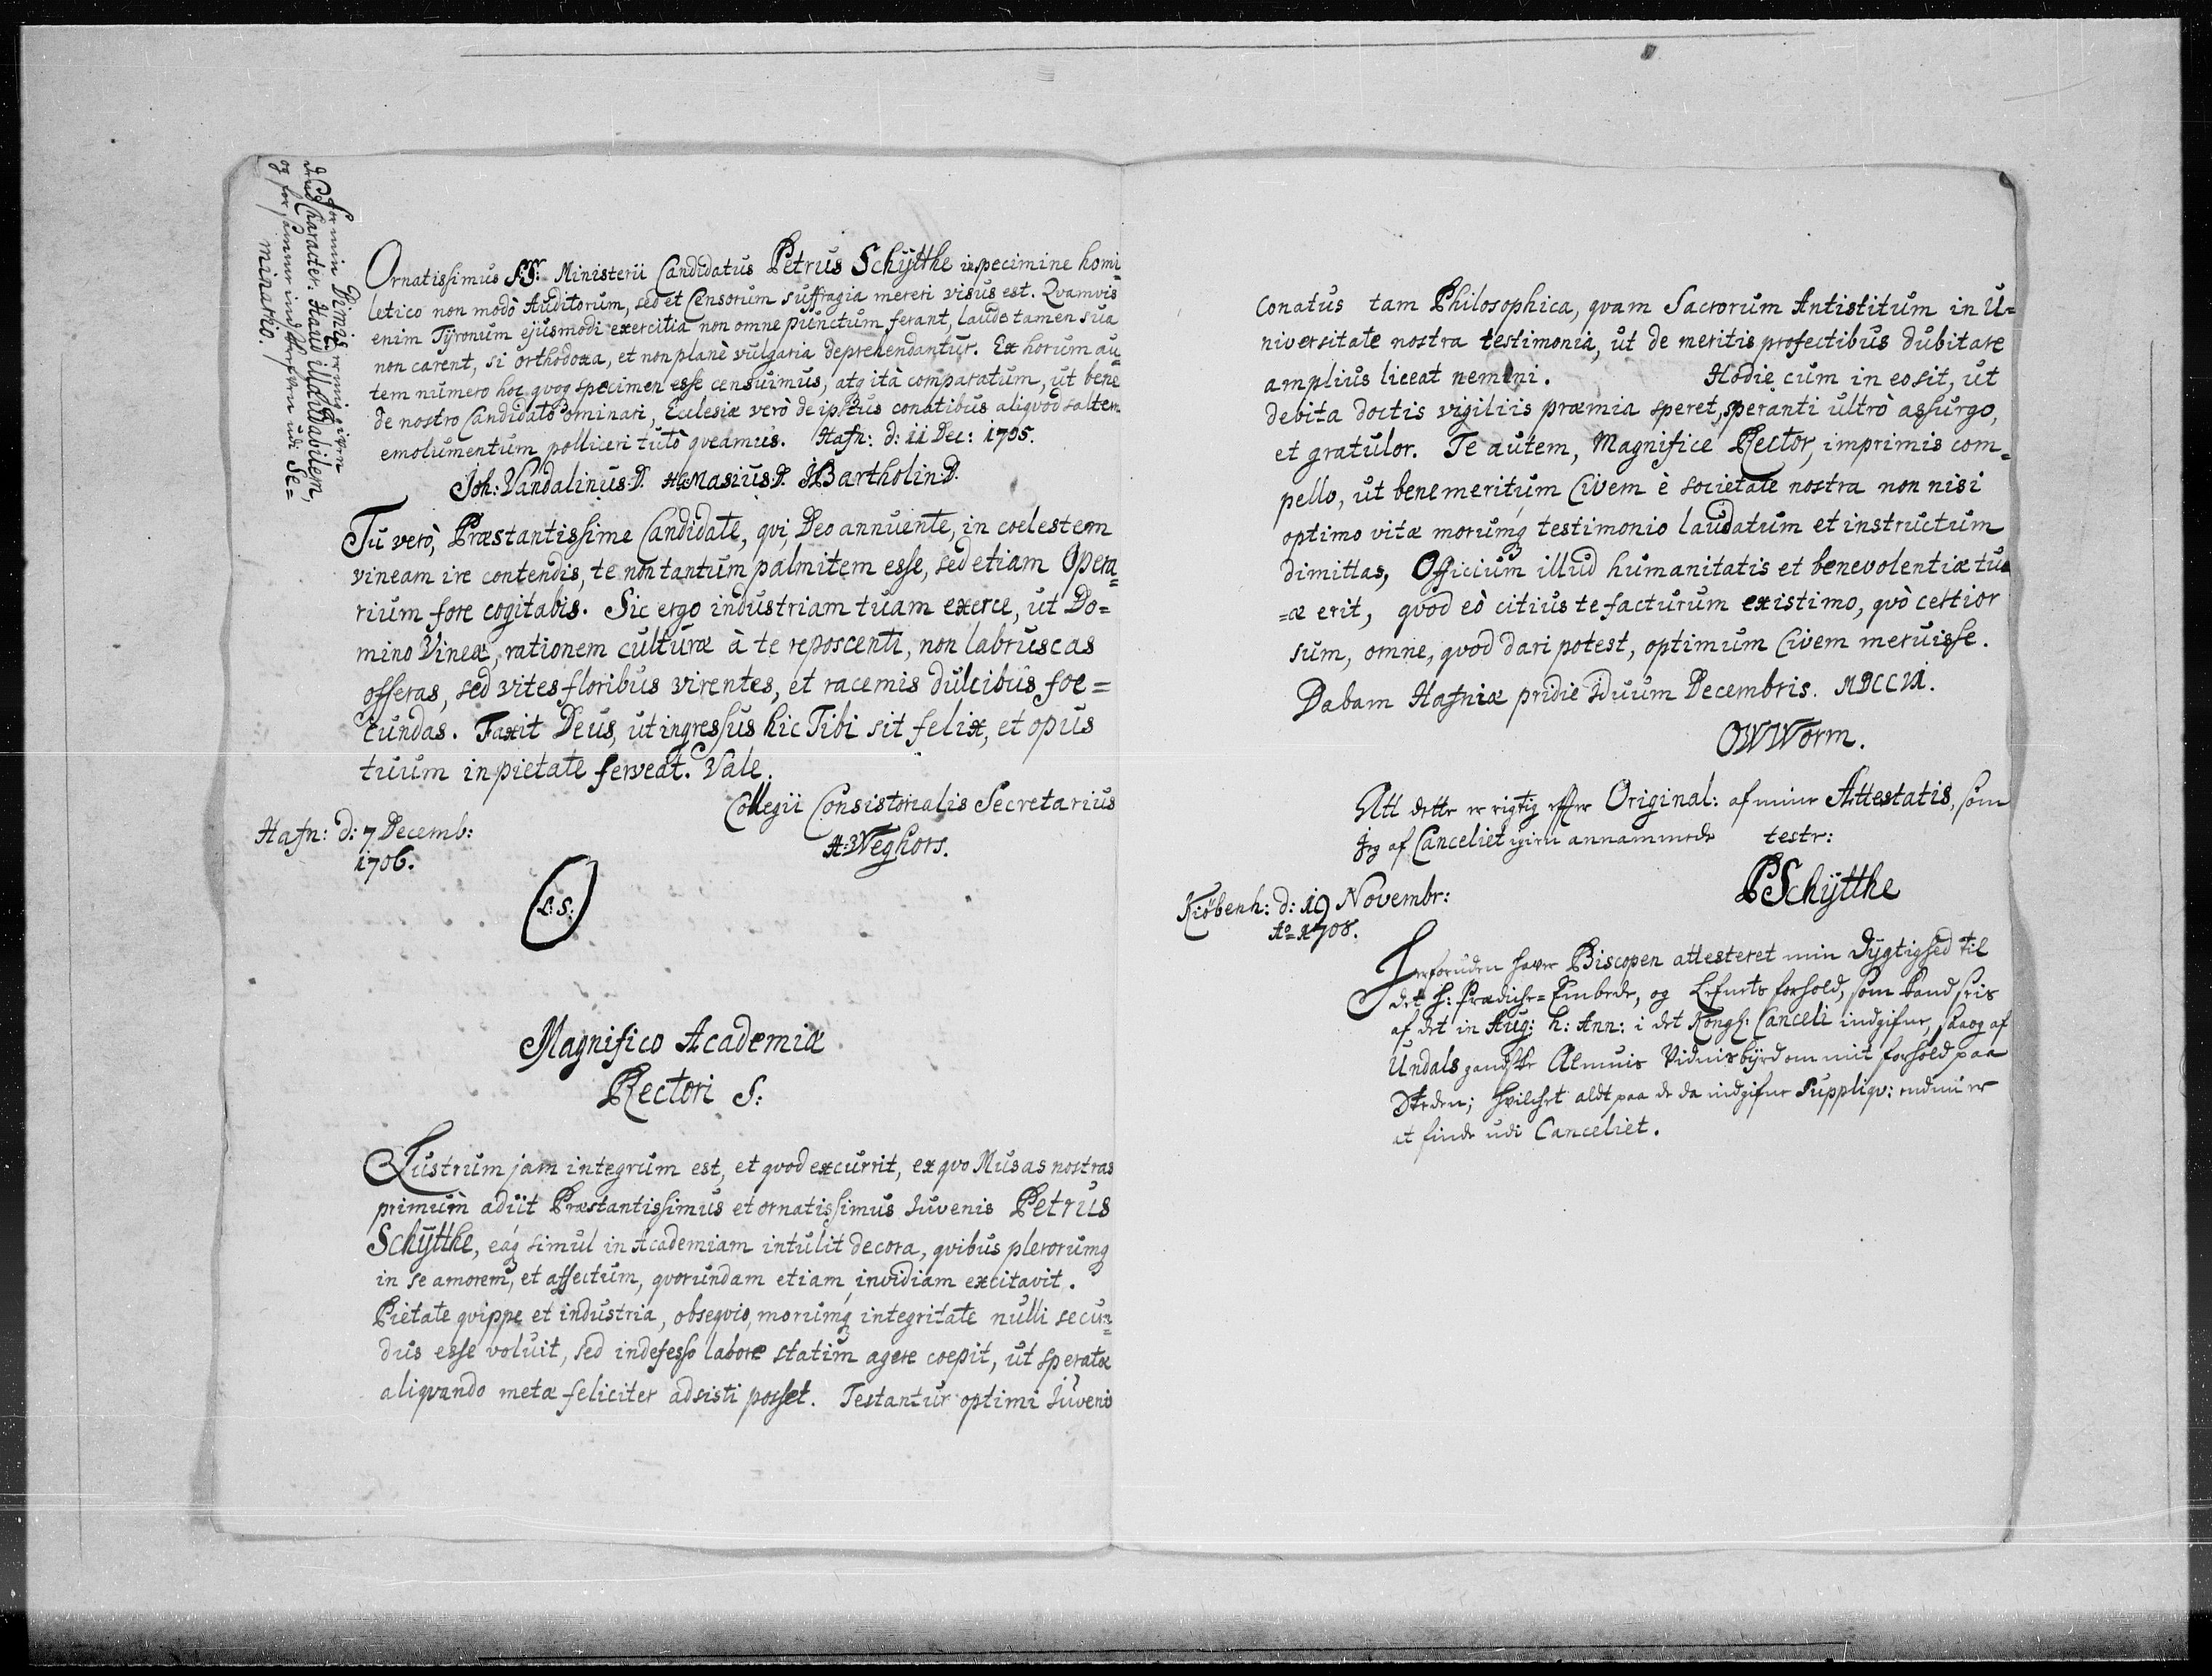 For min Dimis ermig givn
dend Character: Haud illaudabilem,
og for sammer ind udi Se=
minario.
Ornatissimus S.S. Ministerii Candidatus Petrus Schÿtthe in specimine homi=
letico non modò Auditorum, sed et Censorum suffragia mereri visus est. Qvamvis
enim Tÿronum ejusmodi exercitia non omne punctum ferant, laude tamen sua
non carent, si orthodoxa, et non planè vulgaria deprehendantur. Ex horum au=
tem numero hoc qvoq specimen esse censuimus, atq ità comparatum, ut bene
de nostro Candidato ominari, Ecclesiæ verò de ipsius conatibus aliqvod saltem
emolumentum polliceri tutò qveamus. Hafn: d: 11 Dec: 1705.
Joh: Vandalinus. D. HGMasius. D. HBartholin. D.
Tu verò, Præstantissime Candidate, qvi, Deo annuente, in coelestem
vineam ire contendis, te non tantum palmitem esse, sed etiam Opera=
rium fore cogitabis. Sic ergo industriam tuam exerce, ut Do=
mino Vineæ, rationem culturæ à te reposcenti, non labruscas
offeras, sed vites floribus virentes, et racemis dulcibus foe=
cundas. Faxit Deus, ut ingressus hic Tibi sit felix, et opus
tuum in pietate ferveat. Vale.
Collegii Consistorialis Secretarius
Hafn: d: 7 Decemb:
1706.
A: Weghors.
L: S:
Magnifico Academiæ
Rectori S:
Lustrum jam integrum est, et qvod excurrit, ex qvo Musas nostras
primum adiit Præstantissimus et ornatissimus Juvenis Petrus
Schÿtthe, eaq simul in Academiam intulit decora, qvibus plerorumq
in se amorem, et affectum, qvorundam etiam invidiam excitavit.
Pietate qvippe et industria, obseqvio, morumq integritate nulli secun=
dus esse voluit, sed indefesso labore statim agere coepit, ut speratæ
aliqvando metæ feliciter adsisti posset. Testantur optimi Juvenis
conatus tam Philosophica, qvam Sacrorum Antistitum in U=
niversitate nostra testimonia, ut de meritis profectibus dubitare
amplius liceat nemini. Hodie cum in eo sit, ut
debita doctis vigiliis præmia speret, speranti ultrò assurgo,
et gratulor. Te autem, Magnifice Rector, imprimis com=
pello, ut benemeritum Civem è societate nostra non nisi
optimo vitæ morumq testimonio laudatum et instructum
dimittas, Officium illud humanitatis et benevolentiæ tu
=æ erit, qvod eò citius te facturum existimo, qvò certior
sum, omne, qvod dari potest, optimum Civem meruisse.
Dabam Hafniæ pridie Iduum Decembris. MDCCVI.
OWWorm.
Att dette er rigtig efter Original: af mine Attestatis, som
Jeg af Canceliet igien annammede testr:
PSchÿtthe
Kiöbenh: d: 19 Novembr:
Aº 1708.
Herforuden haver Biscopen attesteret min Dÿgtighed til
det H: Prædiche=Embede, og Lefnets forhold, som kand seis
af det in Aug: h: Ann: i det Kongl: Canceli indgifne, saa og af
Undals gandske Almuis Vidnisbÿrd om mit forhold paa
Steden; hvilchet aldt paa de da indgifne Suppliqv: endnu er
at finde udi Canceliet.